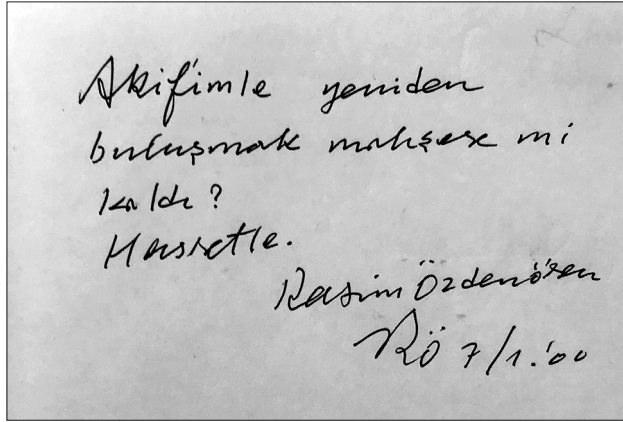 Akif'imle yeniden
buluşmak mahşere mi
kaldı?
Hasretle.
Rasim Özdenören
RÖ 7/1.'00